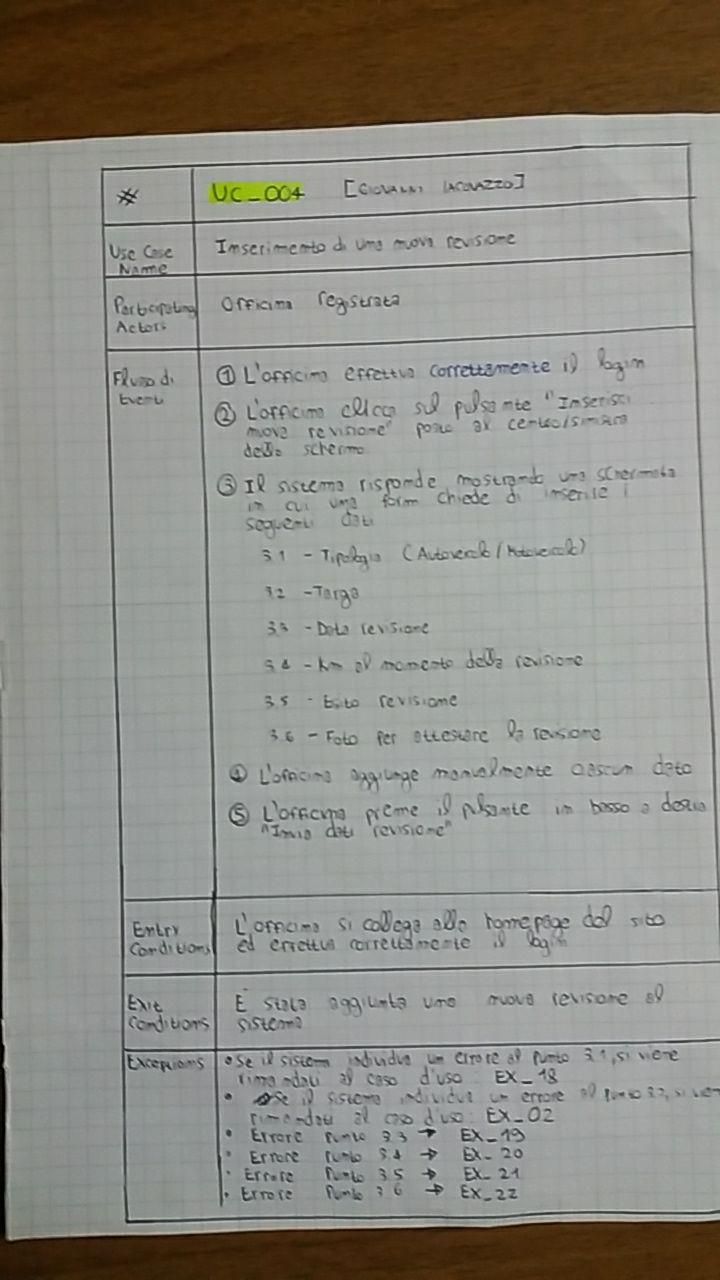 # UC_004 [GIOVANNI IACOVAZZO]
Use Case
Name
Inserimento di una nuova revisione
Participating
Actors
Officina registrata
Flusso di
Eventi
① L'officina effettua correttamente il login
② L'officina clicca sul pulsante "Inserisci
nuova revisione" posto al centro/sinistra
dello schermo
③ Il sistema risponde mostrando una schermata
in cui una form chiede di inserire i
seguenti dati
3.1 - Tipologia (Autoveicolo/Motoveicolo)
3.2 - Targa
3.3 - Data revisione
3.4 - Km al momento della revisione
3.5 - Esito revisione
3.6 - Foto per attestare la revisione
④ L'officina aggiunge manualmente ciascun dato
⑤ L'officina preme il pulsante in basso a destra
"Invia dati revisione"
Entry
Conditions
L'officina si collega alla homepage del sito
ed effettua correttamente il login
Exit
Conditions
È stata aggiunta una nuova revisione al
sistema
Exceptions
• Se il sistema individua un errore al punto 3.1, si viene
rimandati al caso d'uso: EX_18
• Se il sistema individua un errore al punto 3.2, si viene
rimandati al caso d'uso: EX_02
• Errore Punto 3.3 → EX_19
• Errore Punto 3.4 → EX_20
• Errore Punto 3.5 → EX_21
• Errore Punto 3.6 → EX_22